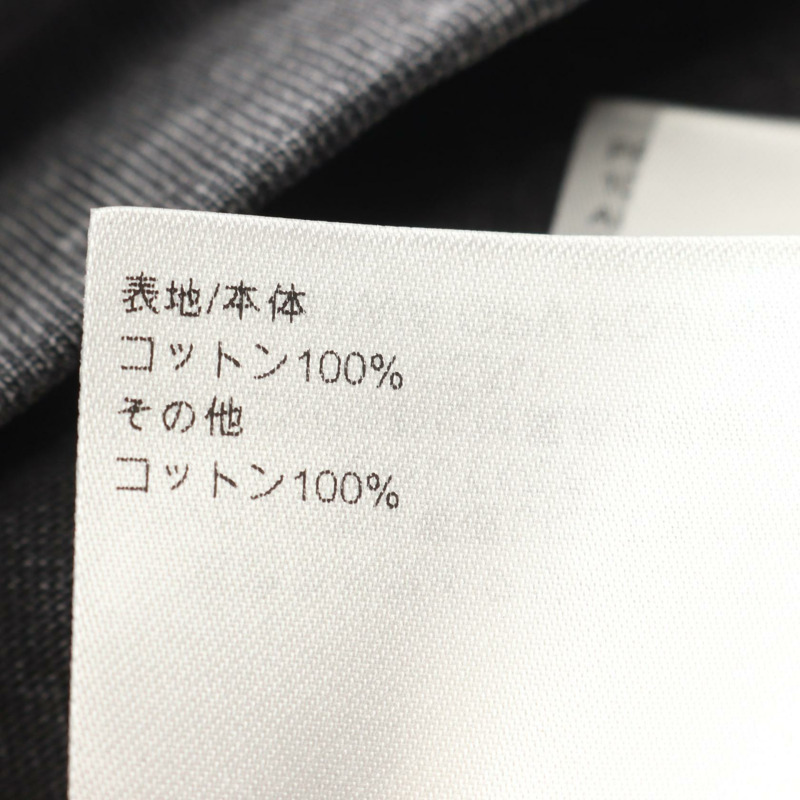 表地/本体
コットン100%
その他
コットン100%